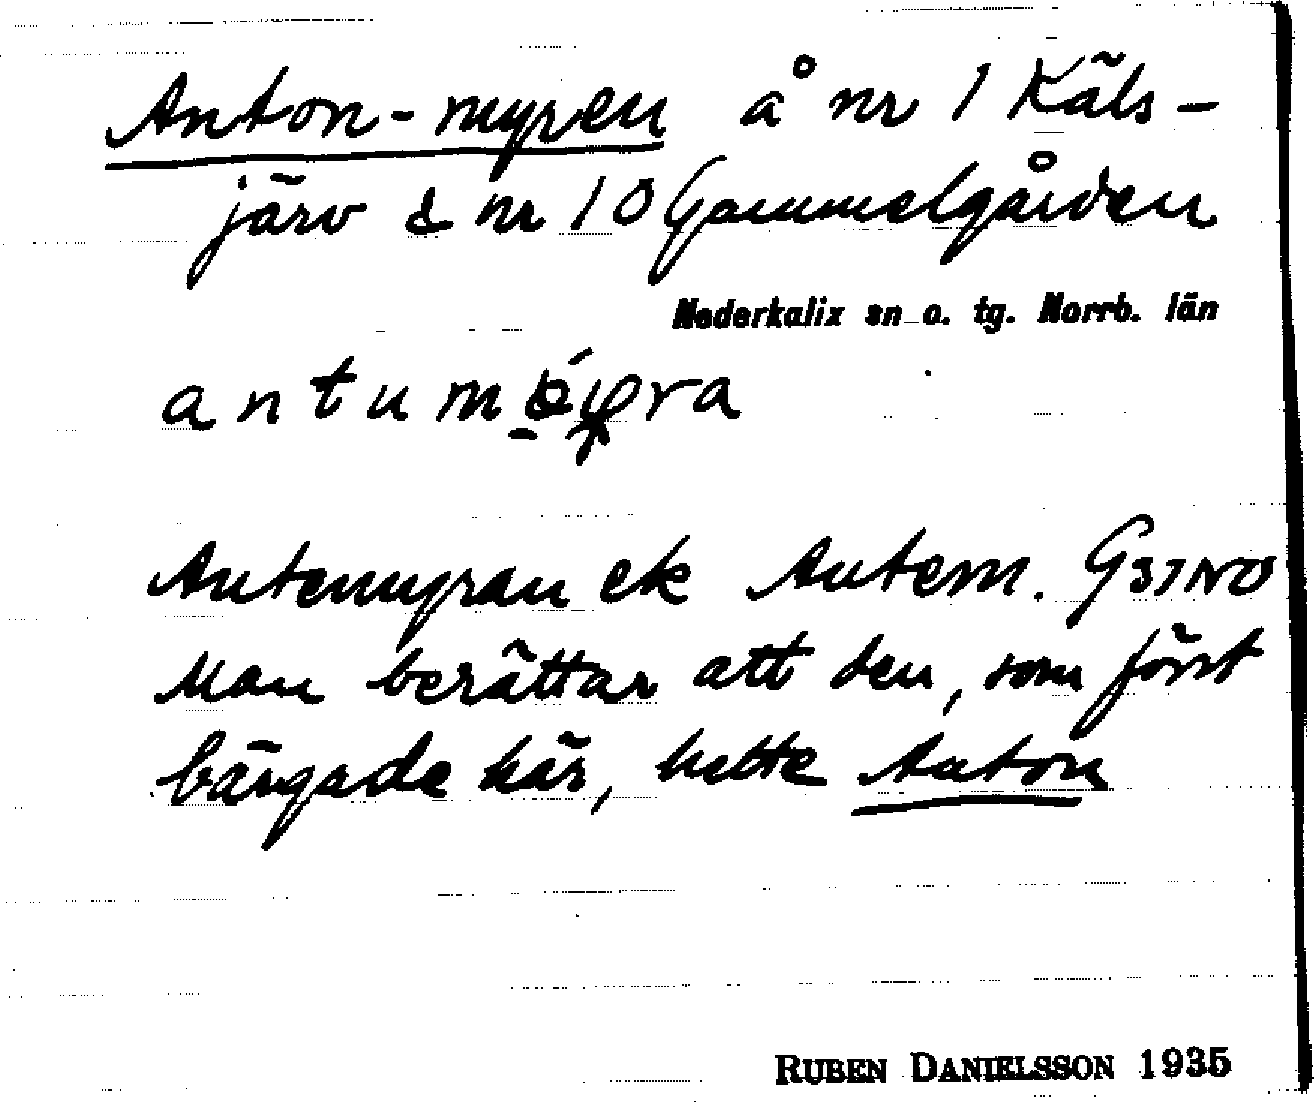 Anton-myren å nr 1 Käls-
järv & nr 10 Gammelgården
Nederkalix sn o. tg. Norrb. län
Antemyran ek Antem. G31N0
Man berättar att den, som först
bärgade här, hette Anton
RUBEN DANIELSSON 1935